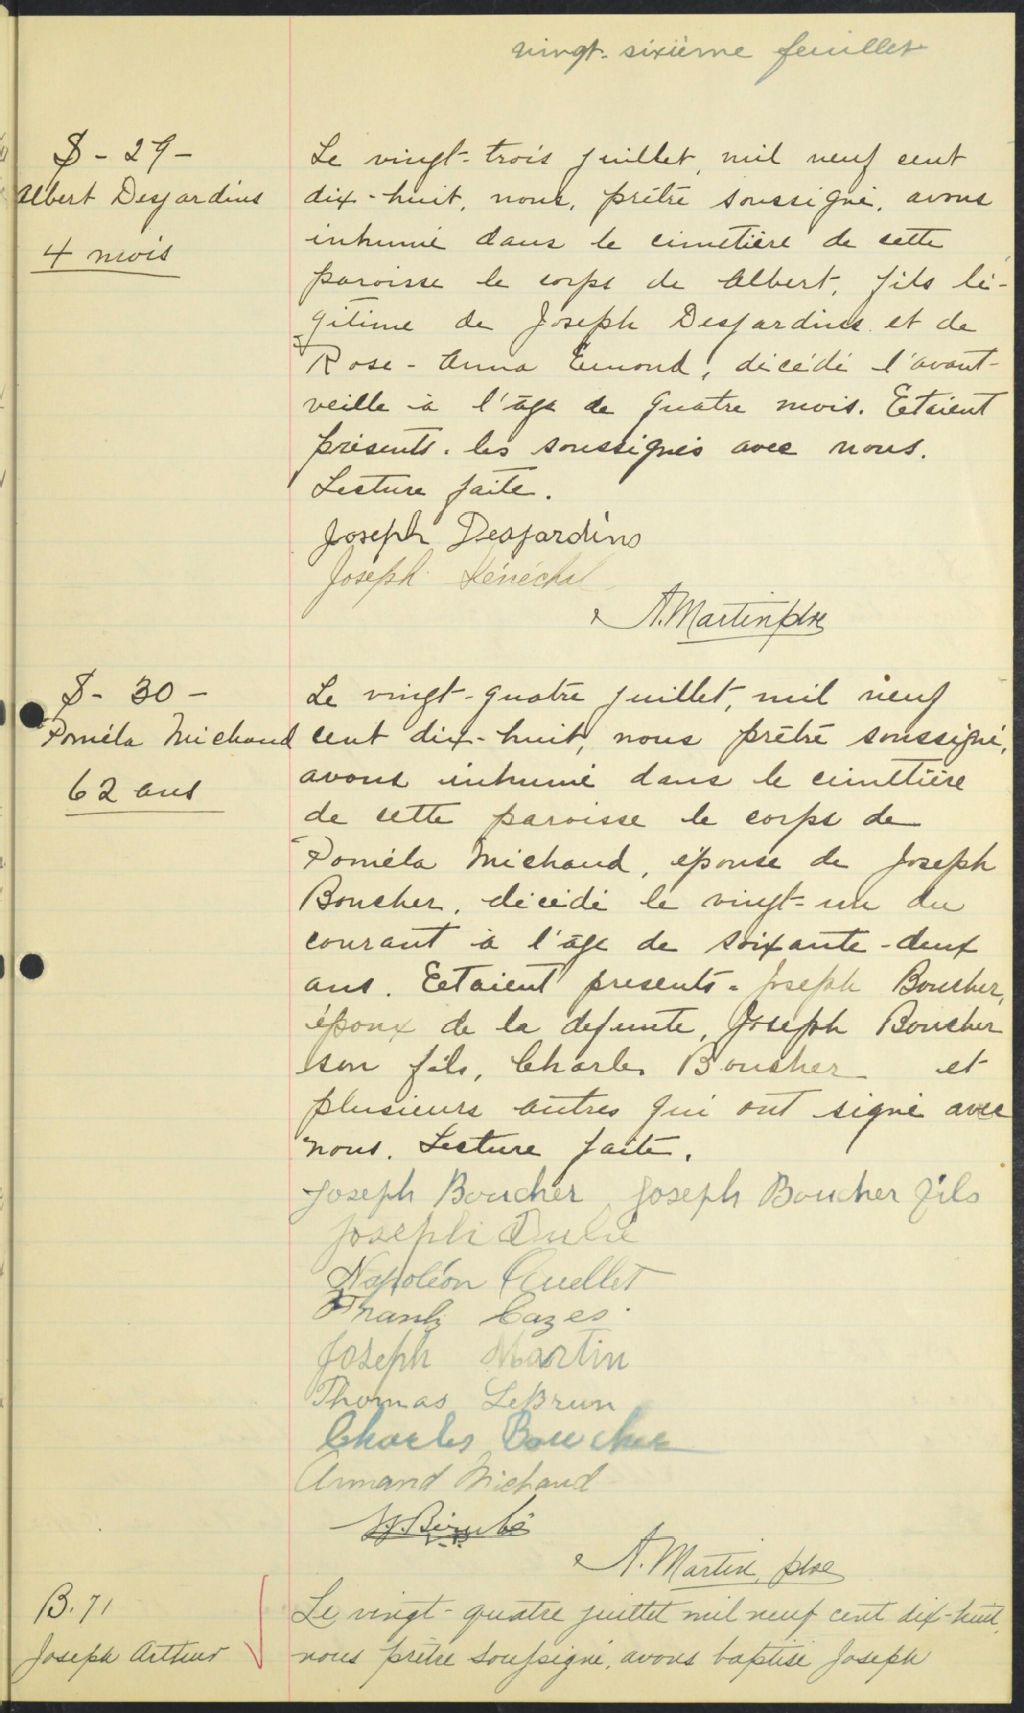 vingt-sixième feuillet
S - 29 -
Albert Desjardins
4 mois
Le vingt-trois juillet, mil neuf cent
dix-huit, nous, prêtre soussigné, avons
inhumé dans le cimetière de cette
paroisse le corps de Albert, fils lé-
gitime de Joseph Desjardins et de
Rose-Anna Emond, décédé l'avant-
veille à l'âge de quatre mois. Etaient
présents. les soussignés avec nous.
Lecture faite.
Joseph Desjardins
Joseph Sénéchal
A. Martin ptre
S - 30 -
Poméla Michaud
62 ans
Le vingt-quatre juillet, mil neuf
cent dix-huit, nous prêtre soussigné,
avons inhumé dans le cimetière
de cette paroisse le corps de
Poméla Michaud, épouse de Joseph
Boucher, décédé le vingt-un du
courant à l'âge de soixante-deux
ans. Etaient presents. Joseph Boucher,
époux de la defunte, Joseph Boucher
son fils, Charles Boucher et
plusieurs autres qui ont signé avec
nous. Lecture faite.
Joseph Boucher Joseph Boucher fils
Joseph Dubé
Napoléon Ouellet
Frank Cazes
Joseph Martin
Thomas LeBrun
Charles Boucher
Armand Michaud
Bérubé
A. Martin, ptre
B. 71
Joseph Arthur
Le vingt-quatre juillet mil neuf cent dix-huit,
nous prêtre soussigné, avons baptisé Joseph